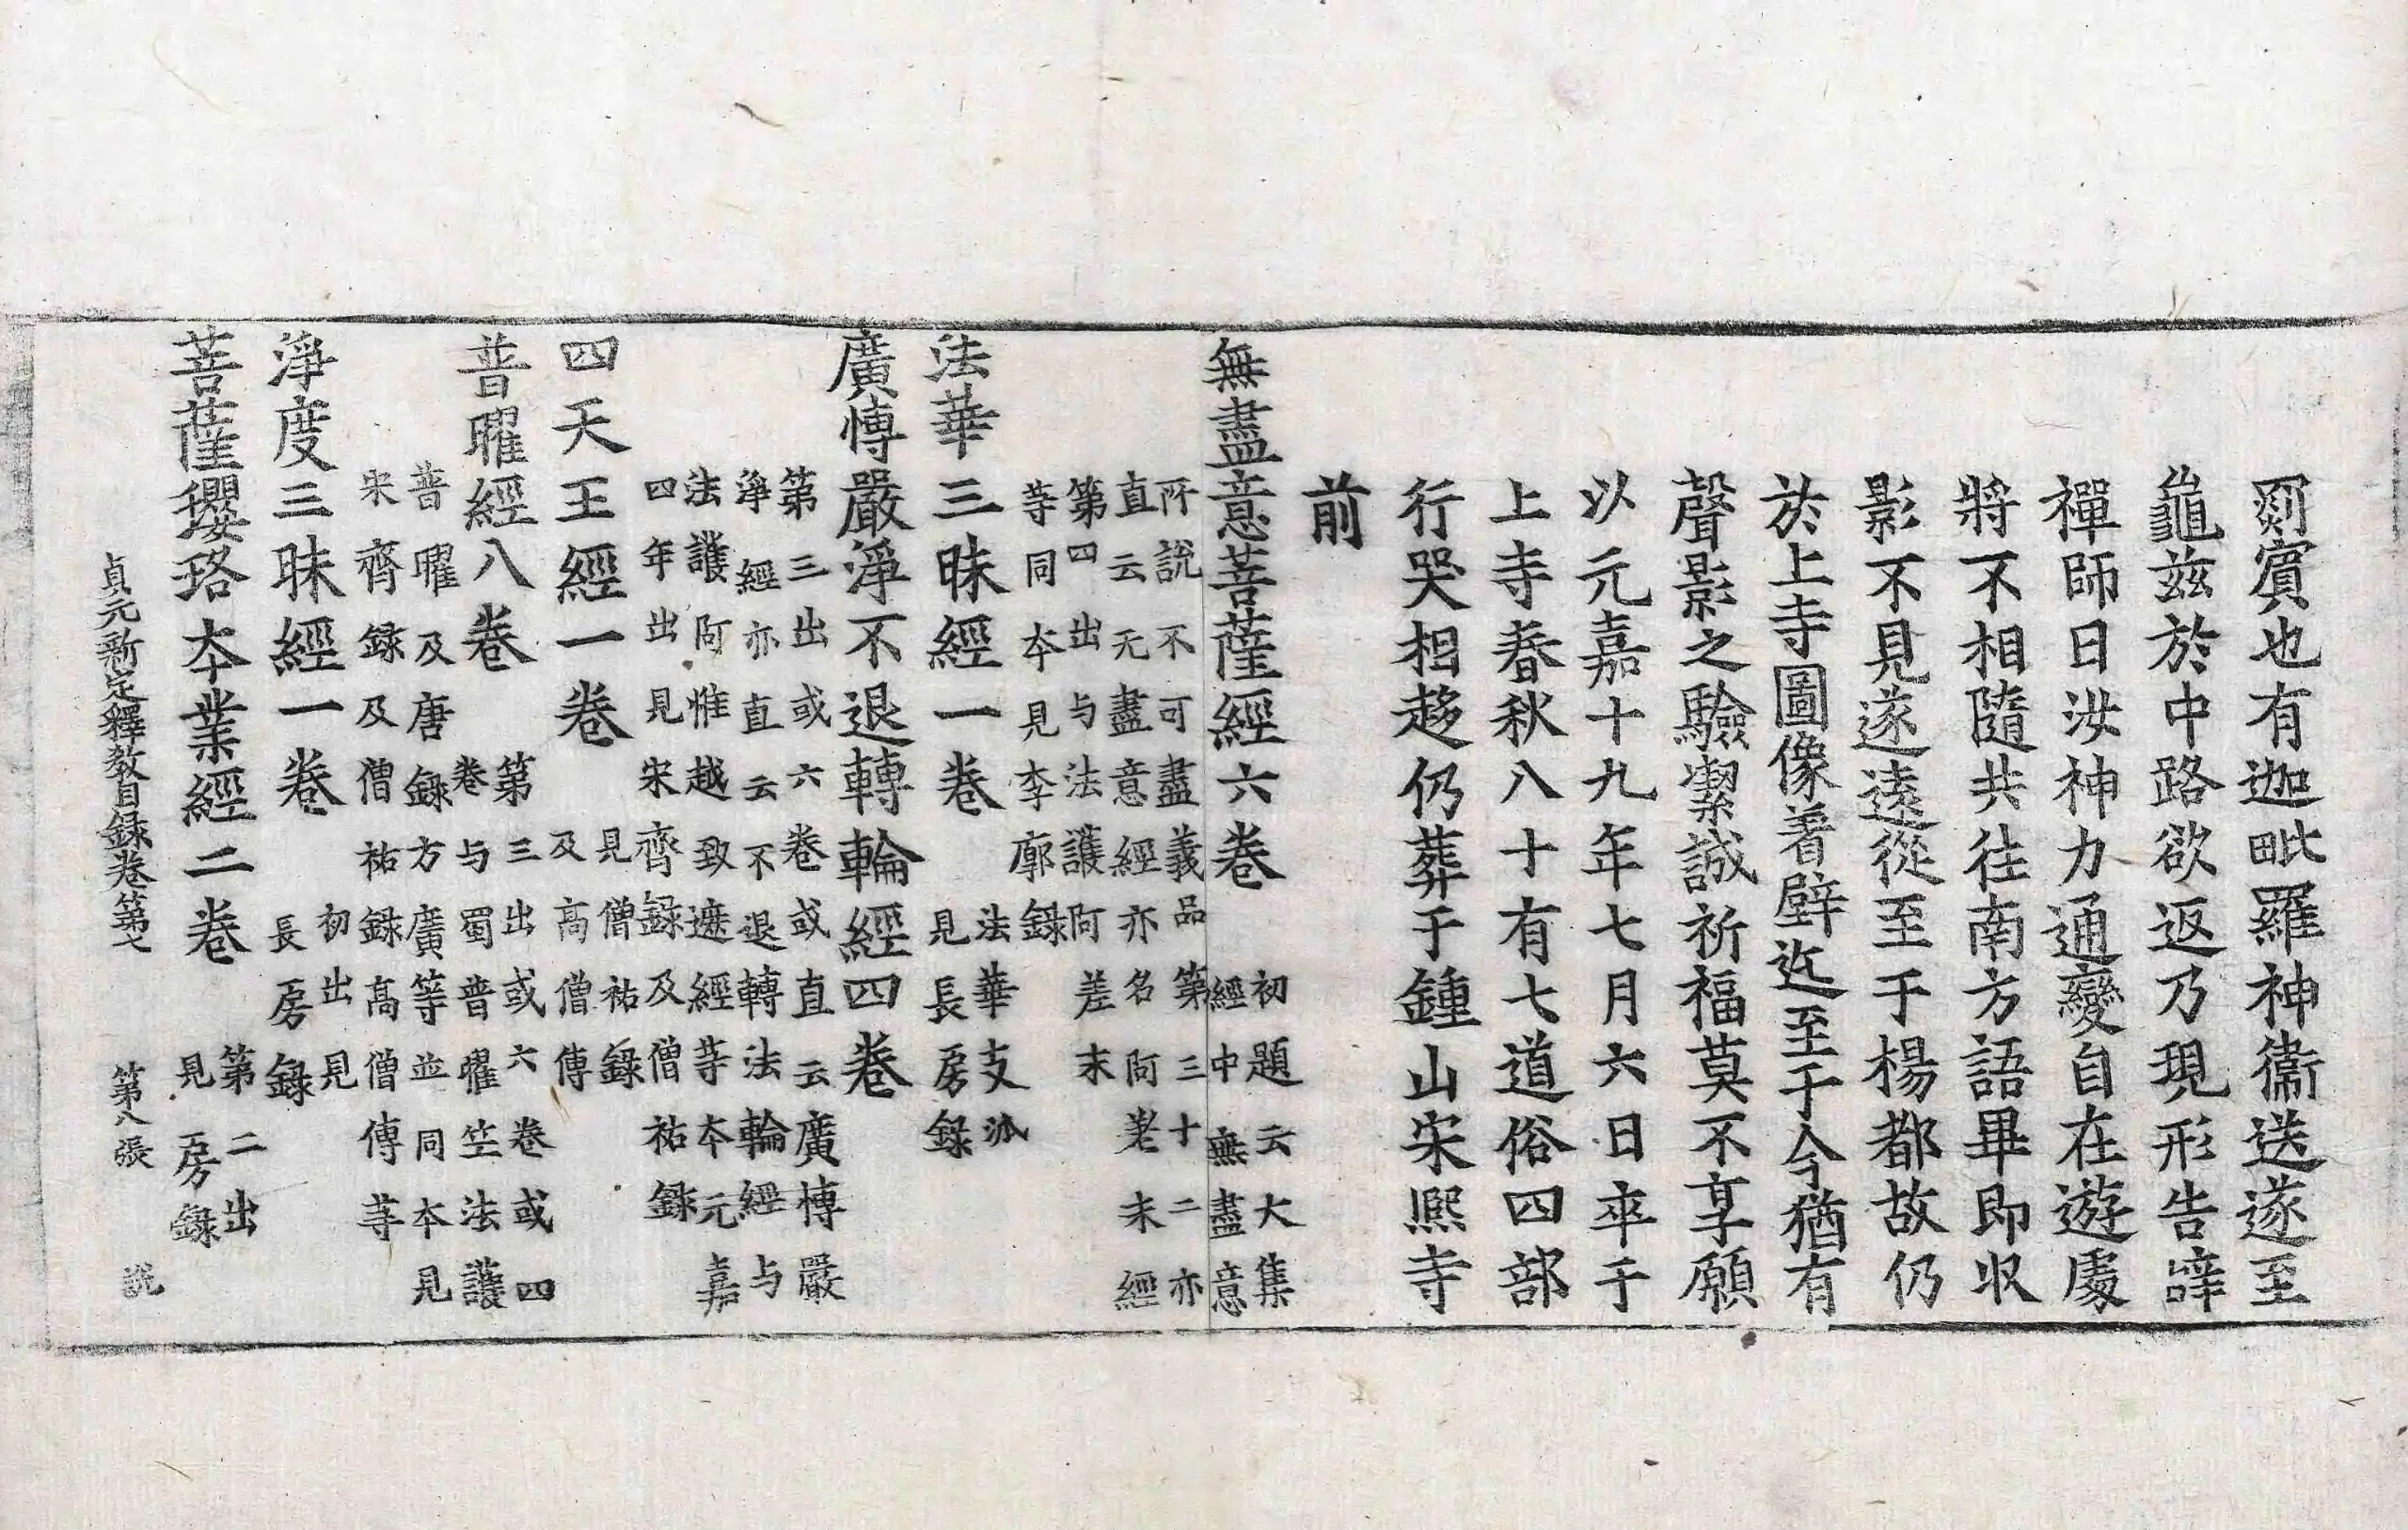 罽賓也有迦毗羅神衞送遂至
龜玆於中路欲返乃現形告辝
禪師曰汝神力通變自在遊處
將不相隨共往南方語畢即収
影不見遂遠從至于楊都故仍
於上寺圖像著壁迄至于今猶有
聲影之驗潔誠祈福莫不享願
以元嘉十九年七月六日卒于
上寺春秋八十有七道俗四部
行哭相趍仍葬于鍾山宋熈寺
前
無盡意菩薩經六卷
初題云大集
經中無盡意
所說不可盡義品第三十二亦
直云无盡意經亦名阿差末經
第四出与法護阿差末
等同本見李廓録
法華三昧經一卷
法華支泒
見長房録
廣愽嚴淨不退轉輪經四卷
第三出或六卷或直云廣愽嚴
淨經亦直云不退轉法輪經与
法護阿惟越致遮經等本元嘉
四年出見宋齊録及僧祐録
四天王經一卷
見僧祐録
及高僧傳
普曜經八卷
第三出或六卷或四
卷与蜀普曜竺法護
普曜及唐録方廣等並同本見
宋齊録及僧祐録高僧傳等
淨度三昧經一卷
初出見
長房録
菩薩瓔珞本業經二卷
第二出
見房録
貞元新定釋教目録卷第七 第八張 說